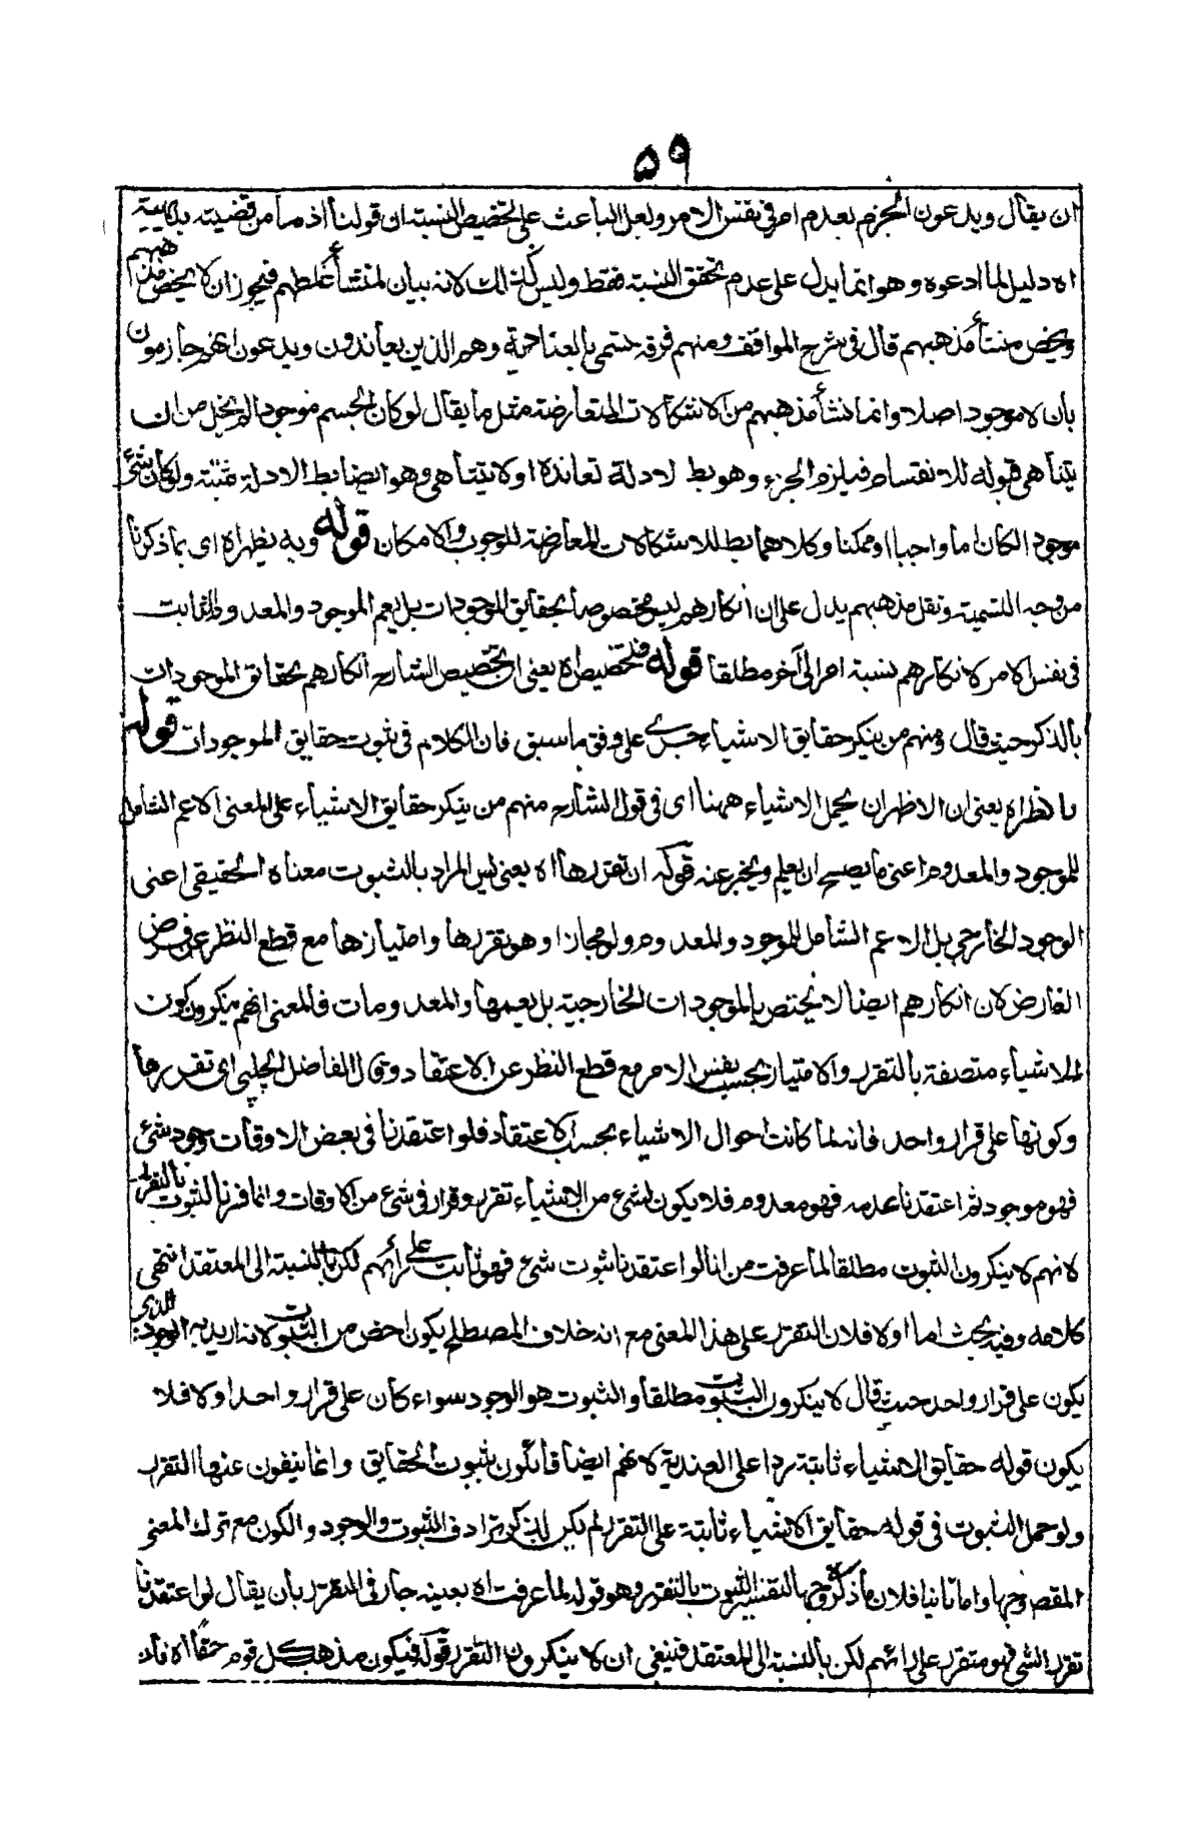 ٥٩
ان يقال ويدعون الجزم بعدم امر في نفس الامر ولعل الباعث على تخصيص النسبة ان قولنا اذ ما من قضيته بديهية
اه دليل لما ادعوه وهو انما يدل على عدم تحقق النسبة فقط وليس كذلك لانه بيان لمنشأ غلطهم فيجوز ان لا يخص مذهبهم
ويخص منشأ مذهبهم قال في شرح المواقف ومنهم فرقة تسمى بالعنادية وهم الذين يعاندون ويدعون انهم جازمون
بان لا موجود اصلا وانما نشأ مذهبهم من الاشكالات المتعارضة مثل ما يقال لو كان الجسم موجودا لم يخل من ان
يتناهى قبوله للانقسام فيلزم الجزء وهو بط لادلة تعانده او لا يتناهى وهو ايضا بط لادلة مثبتة ولو كان شئ
موجود الكان اما واجبا او ممكنا وكلاهما بط للاشكالات المعارضة للوجوب والامكان قوله وبه يظهر اه اى بما ذكرنا
من وجه التسمية ونقل مذهبهم يدل على ان انكارهم ليس مخصوصا بحقايق الموجودات بل يعم الموجود والمعدوم الثابت
في نفس الامر لانكارهم نسبة امر الى آخر مطلقا قوله فتخصيص اه يعنى ان تخصيص الشارح انكارهم بحقايق الموجودات
بالذكر حيث قال ومنهم من ينكر حقايق الاشياء جرى على وفق ما سبق فان الكلام في ثبوت حقايق الموجودات قوله
بالنظر اه يعنى ان الاظهر ان يحمل الاشياء ههنا اى في قول الشارح منهم من ينكر حقايق الاشياء على المعنى الاعم الشامل
للموجود والمعدوم اعنى ما يصح ان يعلم ويخبر عنه قوله ان تقررها اه يعنى ليس المراد بالثبوت معناه الحقيقى اعنى
الوجود الخارجى بل الاعم الشامل للموجود والمعدوم ولو مجازا وهو تقررها وامتيازها مع قطع النظر عن فرض
الفارض لان انكارهم ايضا لا يختص بالموجودات الخارجية بل يعمها والمعدومات فالمعنى انهم ينكرون كون
الاشياء متصفة بالتقرر والامتياز بحسب نفس الامر مع قطع النظر عن الاعتقاد وقال الفاضل الچلپى اى تقررها
وكونها على قرار واحد فانه لما كانت احوال الاشياء بحسب الاعتقاد فلو اعتقدنا في بعض الاوقات وجود شئ
فهو موجود ثم اعتقدنا عدمه فهو معدوم فلا يكون لشئ من الاشياء تقرر وقرار في شئ من الاوقات وانما فسرنا الثبوت بالتقرر
لانهم لا ينكرون الثبوت مطلقا لما عرفت من انا لو اعتقدنا ثبوت شئ فهو ثابت على رائهم لكن بالنسبة الى المعتقد انتهى
كلامه وفيه بحث اما اولا فلان التقرر على هذا المعنى مع انه خلاف المصطلح يكون اخص من الثبوت لانه اريد به الوجود الذى
يكون على قرار واحد حيث قال لا ينكرون الثبوت مطلقا والثبوت هو الوجود سواء كان على قرار واحد او لا فلا
يكون قوله حقايق الاشياء ثابتة ردا على العندية لانهم ايضا قائلون بثبوت الحقايق وانما ينفون عنها التقرر
ولو حمل الثبوت في قوله حقايق الاشياء ثابتة على التقرر لم يكن لذكر ترادف الثبوت والوجود والكون مع ترك المعنى
المقصود وجه واما ثانيا فلان ما ذكره وجها لتفسير الثبوت بالتقرر وهو قوله لما عرفت اه بعينه جار في التقرر بان يقال لو اعتقدنا
تقرر الشئ فهو متقرر على رائهم لكن بالنسبة الى المعتقد فينبغى ان لا ينكرون التقرر قوله فيكون مذهب كل قوم حقا اه فان